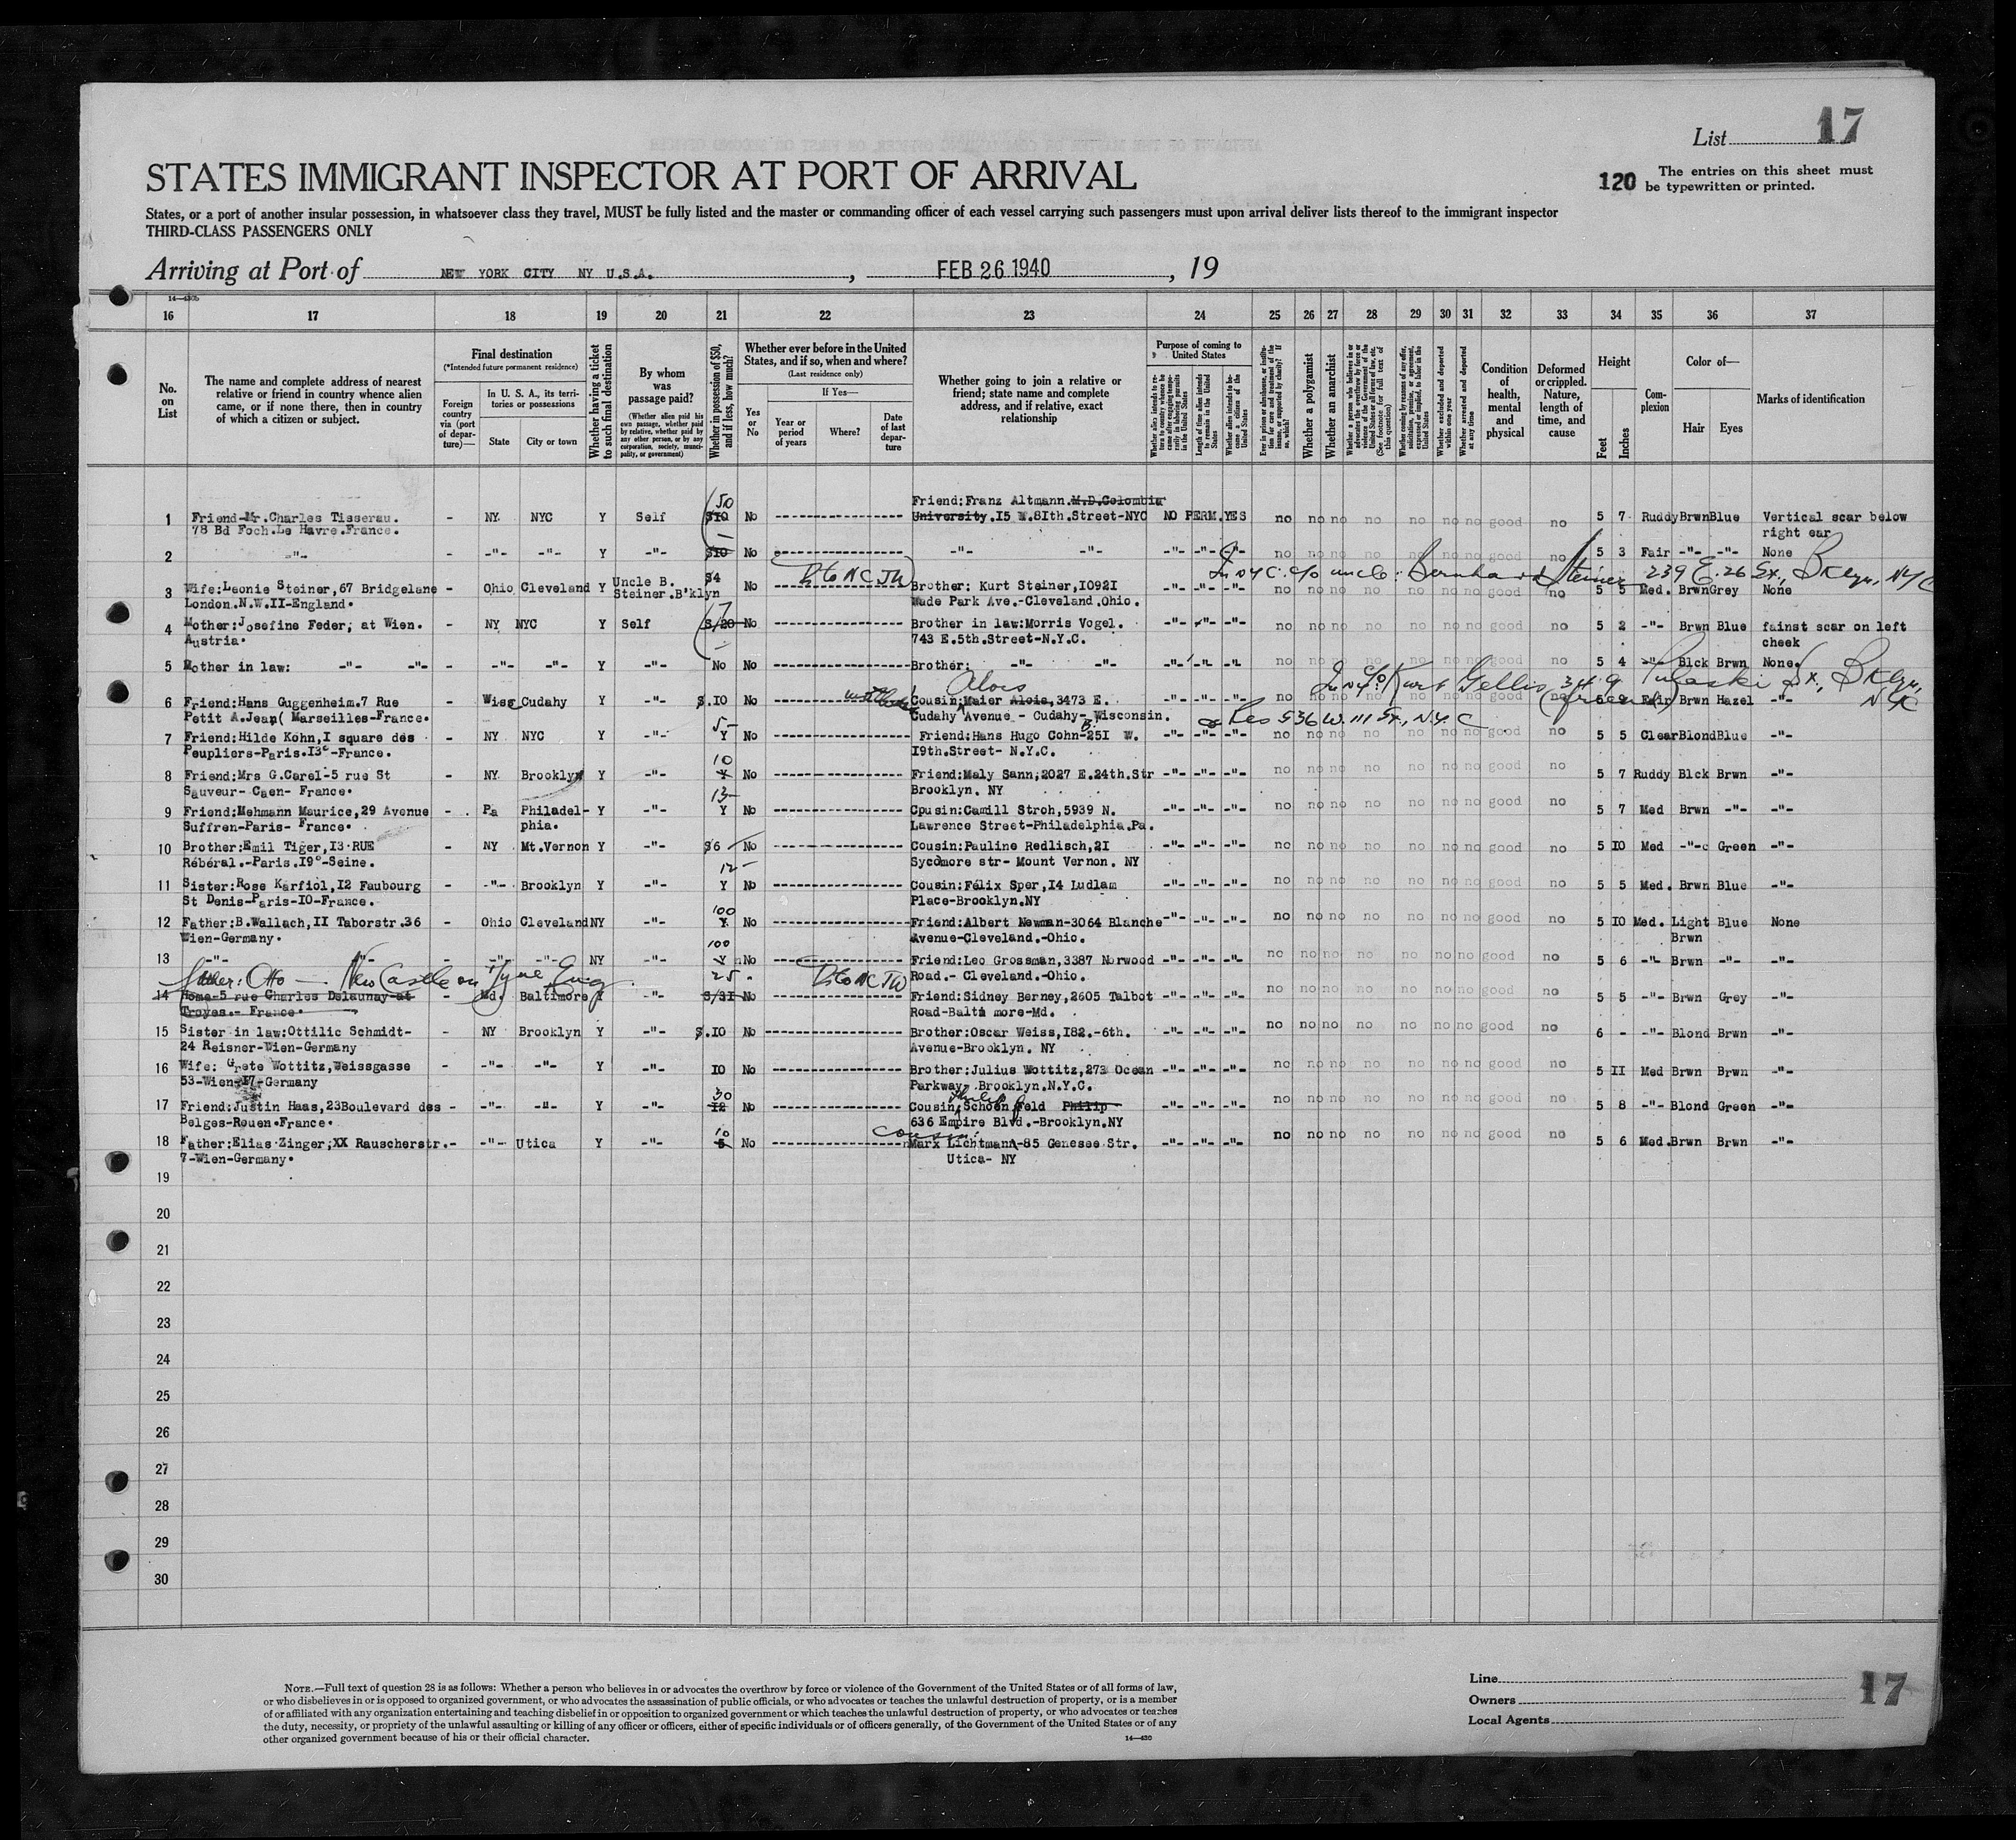 List 17
STATES IMMIGRANT INSPECTOR AT PORT OF ARRIVAL
120 The entries on this sheet must
be typewritten or printed.
States, or a port of another insular possession, in whatsoever class they travel, MUST be fully listed and the master or commanding officer of each vessel carrying such passengers must upon arrival deliver lists thereof to the immigrant inspector
THIRD-CLASS PASSENGERS ONLY
Arriving at Port of NEW YORK CITY NY U.S.A. , FEB 26 1940 , 19
14—430b
16 17 18 19 20 21 22 23 24 25 26 27 28 29 30 31 32 33 34 35 36 37
No. on List
The name and complete address of nearest relative or friend in country whence alien came, or if none there, then in country of which a citizen or subject.
Final destination
(*Intended future permanent residence)
Foreign country via (port of departure)—
In U. S. A., its territories or possessions
State City or town
Whether having a ticket to such final destination
By whom was passage paid?
(Whether alien paid his own passage, whether paid by relative, whether paid by any other person, or by any corporation, society, municipality, or government)
Whether in possession of $50, and if less, how much?
Whether ever before in the United States, and if so, when and where?
(Last residence only)
Yes or No
If Yes—
Year or period of years Where? Date of last departure
Whether going to join a relative or friend; state name and complete address, and if relative, exact relationship
Purpose of coming to United States
Length of time alien intends to remain in the United States
Whether alien intends to become a citizen of the United States
Whether a polygamist
Whether an anarchist
Whether excluded and deported within one year
Whether arrested and deported at any time
Condition of health, mental and physical
Deformed or crippled. Nature, length of time, and cause
Height
Feet Inches
Complexion
Color of—
Hair Eyes
Marks of identification
Friend:Franz Altmann.M.D.Colombia
1 Friend-Mr.Charles Tisserau. - NY. NYC Y Self 50 $10 No University.I5 W.8Ith.Street-NYC NO PERM.YES no no no no no no no good no 5 7 Ruddy Brwn Blue Vertical scar below
78 Bd Foch.Le Havre.France. right ear
2 -"- - -"- -"- Y -"- $10 No -"- -"- -"- -"- -"- no no no no no no no good no 5 3 Fair -"- -"- None
In NYC. c/o uncle: Bernhard Steiner 239 E. 26 St., Bklyn, NYC
3 Wife:Leonie Steiner,67 Bridgelane - Ohio Cleveland Y Uncle B. $4 No Brother: Kurt Steiner,I092I -"- -"- -"- no no no no no no no good no 5 5 Med. Brwn Grey None
London.N.W.II-England. Steiner.B'klyn Wade Park Ave.-Cleveland.Ohio.
4 Mother:Josefine Feder; at Wien. - NY NYC Y Self 17 $/20 No Brother in law:Morris Vogel. -"- -"- -"- no no no no no no no good no 5 2 -"- Brwn Blue fainst scar on left
Austria. 743 E.5th.Street-N.Y.C. cheek
5 Mother in law: -"- -"- - -"- -"- Y -"- No No Brother: -"- -"- -"- -"- -"- no no no no no no no good no 5 4 -"- Blck Brwn None.
Alois In NY c/o Kurt Gellis 349 Pulaski St., Bklyn, NYC (friend)
6 Friend:Hans Guggenheim.7 Rue - Wisc Cudahy Y -"- $.I0 No Cousin:Maier Alois,3473 E. -"- -"- -"- no no no no no no no good no 5 9 Fair Brwn Hazel -"-
Petit A.Jean( Marseilles-France. Cudahy Avenue - Cudahy- Wisconsin.
Res 536 W. 111 St., N.Y.C
7 Friend:Hilde Kohn,I square des - NY NYC Y -"- Y No Friend:Hans Hugo Cohn-25I W. -"- -"- -"- no no no no no no no good no 5 5 Clear Blond Blue -"-
Peupliers-Paris.I3e-France. I9th.Street- N.Y.C.
8 Friend:Mrs G.Carel-5 rue St - NY. Brooklyn Y -"- 10 Y No Friend:Maly Sann;2027 E.24th.Str -"- -"- -"- no no no no no no no good no 5 7 Ruddy Blck Brwn -"-
Sauveur- Caen- France. Brooklyn. NY
9 Friend:Mehmann Maurice,29 Avenue - Pa Philadel- Y -"- 13- Y No Cpusin:Camill Stroh,5939 N. -"- -"- -"- no no no no no no no good no 5 7 Med Brwn -"- -"-
Suffren-Paris- France. phia. Lawrence Street-Philadelphia.Pa.
10 Brother:Emil Tiger,I3.RUE - NY Mt.Vernon Y -"- $6 No Cousin:Pauline Redlisch,2I -"- -"- -"- no no no no no no no good no 5 I0 Med -"- Green -"-
Rébéral.-Paris.I9e-Seine. Sycomore str- Mount Vernon. NY
11 Sister:Rose Karfiol,I2 Faubourg - -"- Brooklyn Y -"- 12- Y No Cousin:Félix Sper,I4 Ludlam -"- -"- -"- no no no no no no no good no 5 5 Med. Brwn Blue -"-
St Denis-Paris-IO-France. Place-Brooklyn.NY
12 Father:B.Wallach,II Taborstr.36 - Ohio Cleveland NY -"- 100 Y No Friend:Albert Newman-3064 Blanche -"- -"- -"- no no no no no no no good no 5 I0 Med. Light Blue None
Wien-Germany. Avenue-Cleveland.-Ohio. Brwn
13 -"- -"- - -"- -"- NY -"- 100 Y No Friend:Leo Grossman,3387 Norwood -"- -"- -"- no no no no no no no good no 5 6 -"- Brwn -"- -"-
Otto — New Castle on Tyne Eng. 25 Road.- Cleveland.-Ohio.
14 Home-5 rue Charles Delaunay-at - Md. Baltimore Y -"- $/3I No Friend:Sidney Berney,2605 Talbot -"- -"- -"- no no no no no no no good no 5 5 -"- Brwn Grey -"-
Troyes.- France. Road-Balti more-Md.
15 Sister in law:Ottilic Schmidt- - NY Brooklyn Y -"- $.I0 No Brother:Oscar Weiss,I82.-6th. -"- -"- -"- no no no no no no no good no 6 - -"- Blond Brwn -"-
24 Reisner-Wien-Germany Avenue-Brooklyn. NY
16 Wife: Grete Wottitz,Weissgasse - -"- -"- Y -"- I0 No Brother:Julius Wottitz,273 Ocean -"- -"- -"- no no no no no no no good no 5 II Med Brwn Brwn -"-
53-Wien-I7-Germany Parkway- Brooklyn.N.Y.C.
17 Friend:Justin Haas,23Boulevard des - -"- -"- Y -"- 30 I2 No Cousin:Schoen feld Philip -"- -"- -"- no no no no no no no good no 5 8 -"- Blond Green -"-
Belges-Rouen.France. 636 Empire Blvd.-Brooklyn.NY
18 Father:Elias Zinger;XX Rauscherstr.- -"- Utica Y -"- 10 5 No cousin: Marx Lichtmann-85 Genesee Str. -"- -"- -"- no no no no no no no good no 5 6 Med. Brwn Brwn -"-
7-Wien-Germany. Utica- NY
19
20
21
22
23
24
25
26
27
28
29
30
NOTE.—Full text of question 28 is as follows: Whether a person who believes in or advocates the overthrow by force or violence of the Government of the United States or of all forms of law,
or who disbelieves in or is opposed to organized government, or who advocates the assassination of public officials, or who advocates or teaches the unlawful destruction of property, or is a member
of or affiliated with any organization entertaining and teaching disbelief in or opposition to organized government or which teaches the unlawful destruction of property, or who advocates or teaches
the duty, necessity, or propriety of the unlawful assaulting or killing of any officer or officers, either of specific individuals or of officers generally, of the Government of the United States or of any
other organized government because of his or their official character.
14—430
Line
Owners
Local Agents
17